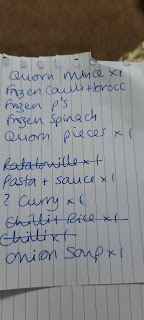 Quorn mince x1
Frozen Caulli + brocc
Frozen P's
Frozen Spinach
Quorn pieces x1
Ratatouille x1
Pasta + sauce x1
? Curry x1
Chilli + Rice x1
Chilli x1
Onion Soup x1